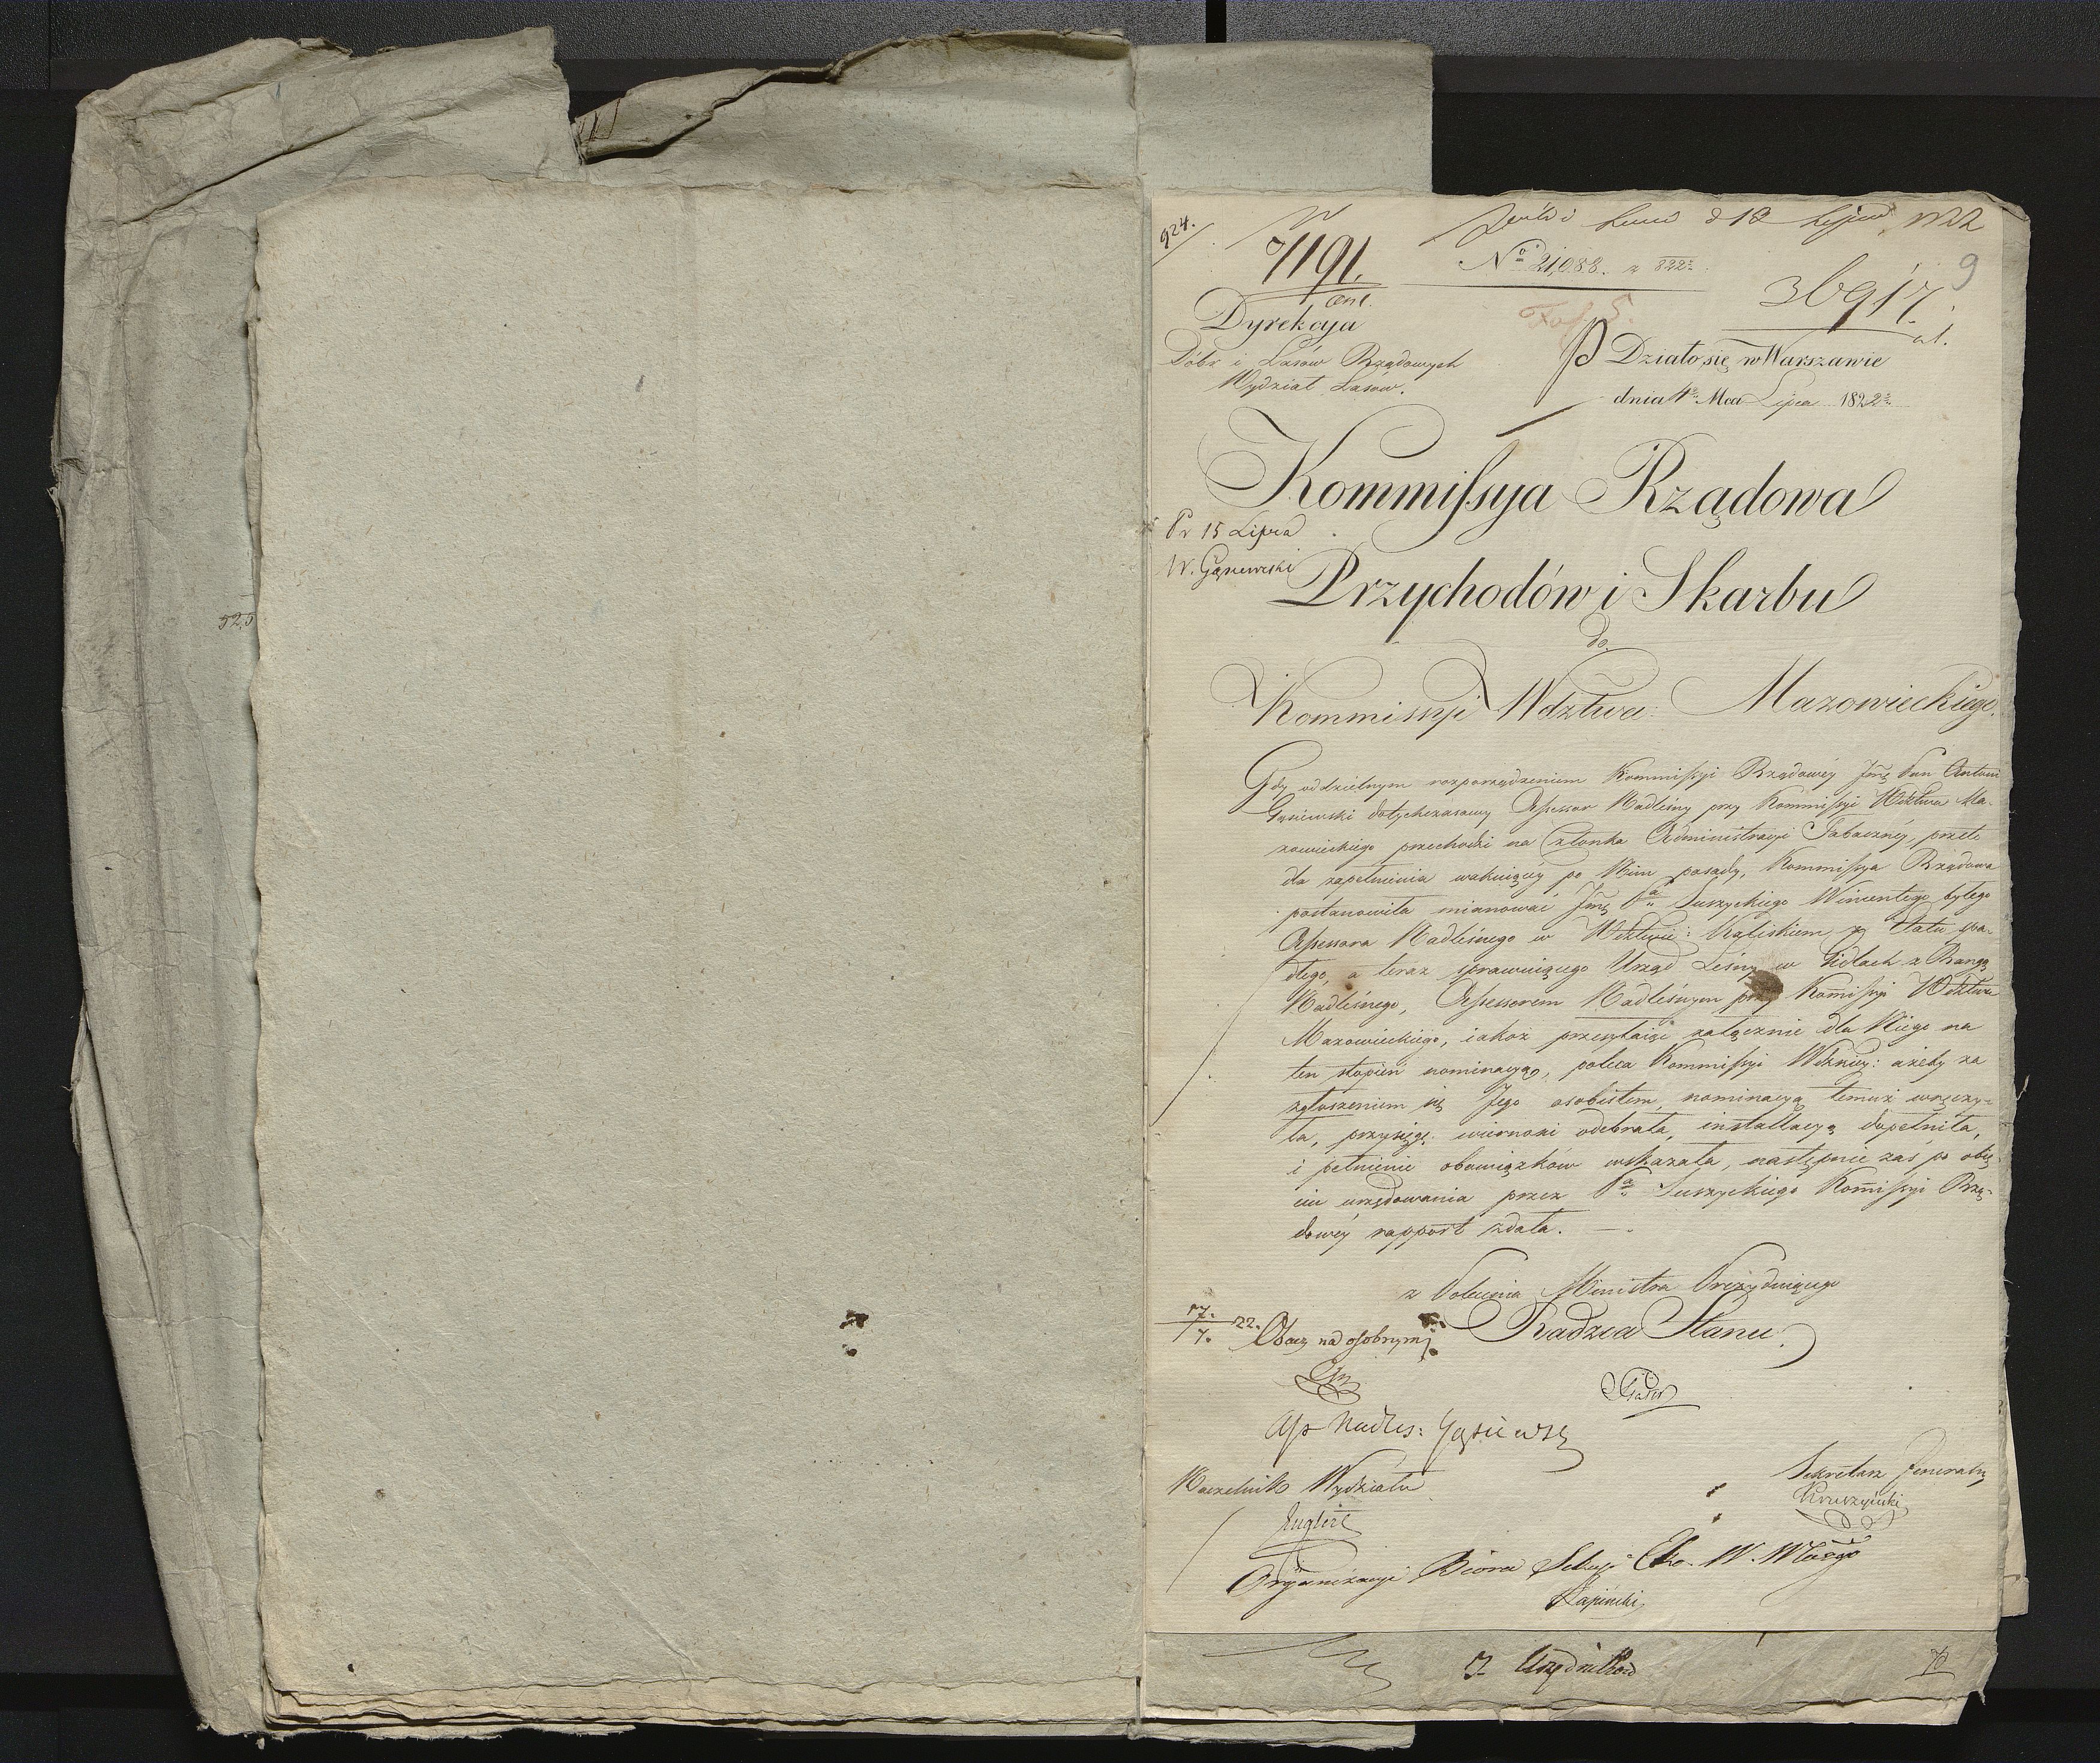 924.
7191.
N° 21,088. z 822
36917.
9
Dyrekcya
Dóbr i Lasów Rządowych
Wydział Lasów.
Fol 5.
Działo się w Warszawie
dnia 4 Mca Lipca 1822
Kommissya Rządowa
Pr 15 Lipca
W. Gąsiewski
Przychodów i Skarbu
do
Kommissyi Wdztwa: Mazowieckiego.
Gdy oddzielnym rozporządzeniem Kommissyi Rządowéy Jmć Pan Antoni
Gąsiewski dotychczasowy Assessor Nadleśny przy Kommissyi Wdztwa Ma-
zowieckiego przechodzi na Członka Administracyi Tabaczney, przeto
dla zapełnienia wakuiącey po Nim posady, Kommissya Rządowa
postanowiła mianować Jmć Pa Suszyckiego Wincentego byłego
Assessora Nadleśnego w Wdztwie: Kaliskiem z Etatu spa-
dłego, a teraz sprawuiącego Urząd Leśny w Gidlach z Rangą
Nadleśnego, Assessorem Nadleśnym przy Komissyi Wdztwa
Mazowieckiego, iakoż przesyłaiąc załącznie dla Niego na
ten stopień nominacyą, poleca Kommissyi Wdzkiey: ażeby za
zgłoszeniem się Jego osobistem, nominacyą temuż wręczy-
ła, przysięgę wierności odebrała, installacyą dopełniła,
i pełnienie obowiązków wskazała, następnie zaś po obię-
ciu urzędowania przez Pa Suszyckiego Komissyi Rzą-
dowéy rapport zdała.
z Polecenia Ministra Prezyduiącego
Radzca Stanu
17.
7. 22. Obacz na osobnym
Ass Nadles: Gąsiewski
Naczelnik Wydziału
Englert
Sekretarz Jeneralny
Kruszyński
Organizacyi Biora Sekcyi
Łapiński
Urzędników